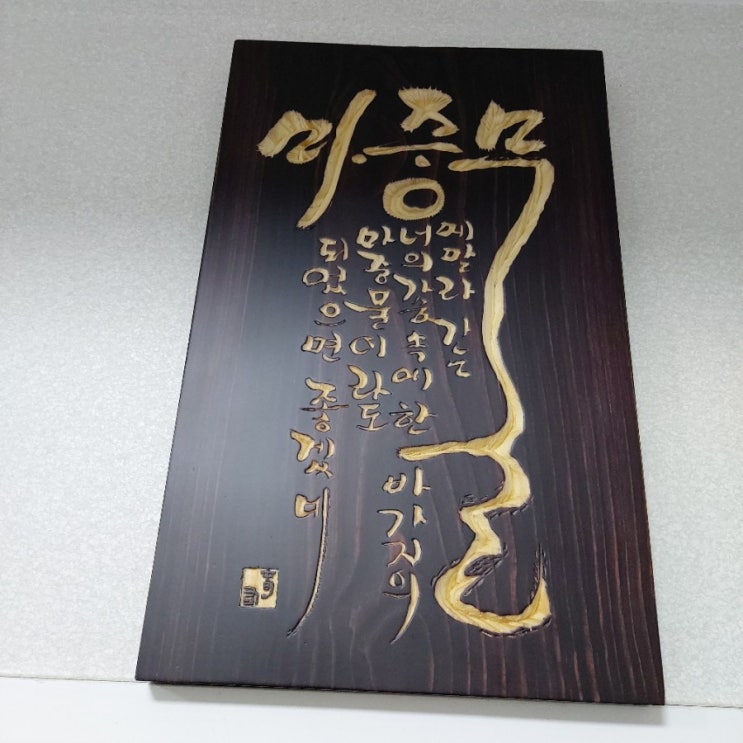 마중물
메말라 가는
너의 가슴속에 한 바가지의
마중물이라도
되었으면 좋겠네